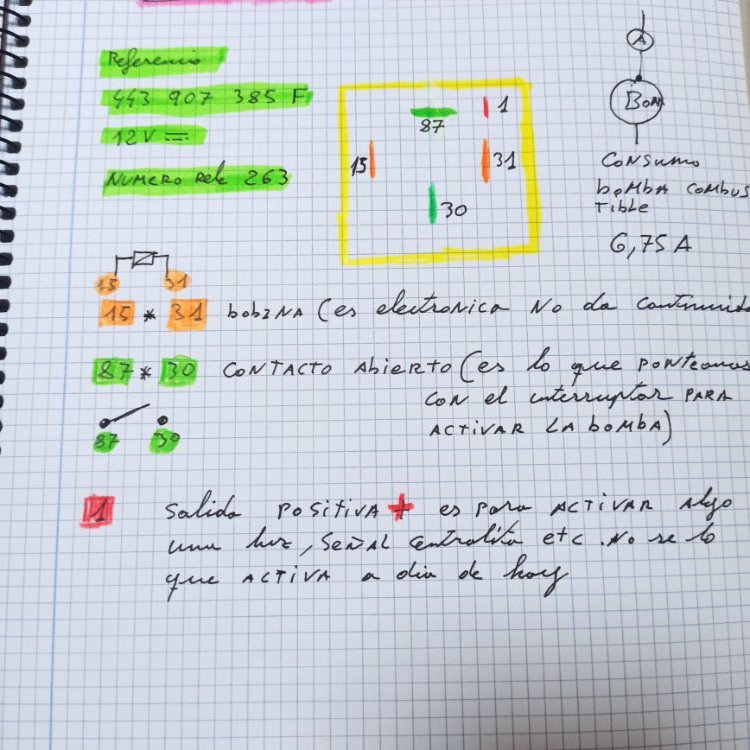 Referencia
443 907 385 F
12V
NUMERO Relé 263
87
1
15
31
30
A
BOMBA
CONSUMO
BOMBA COMBUS
TIBLE
6,75 A
15 31
15 * 31 BOBINA (es electronica NO da continuida
87 * 30 CONTACTO ABIERTO (es lo que PONTEAMOS
CON el interruptor PARA
ACTIVAR LA BOMBA)
87 30
1 Salida POSITIVA + es para ACTIVAR Algo
una luz, SEÑAL centralita etc. No se lo
que ACTIVA a dia de hoy